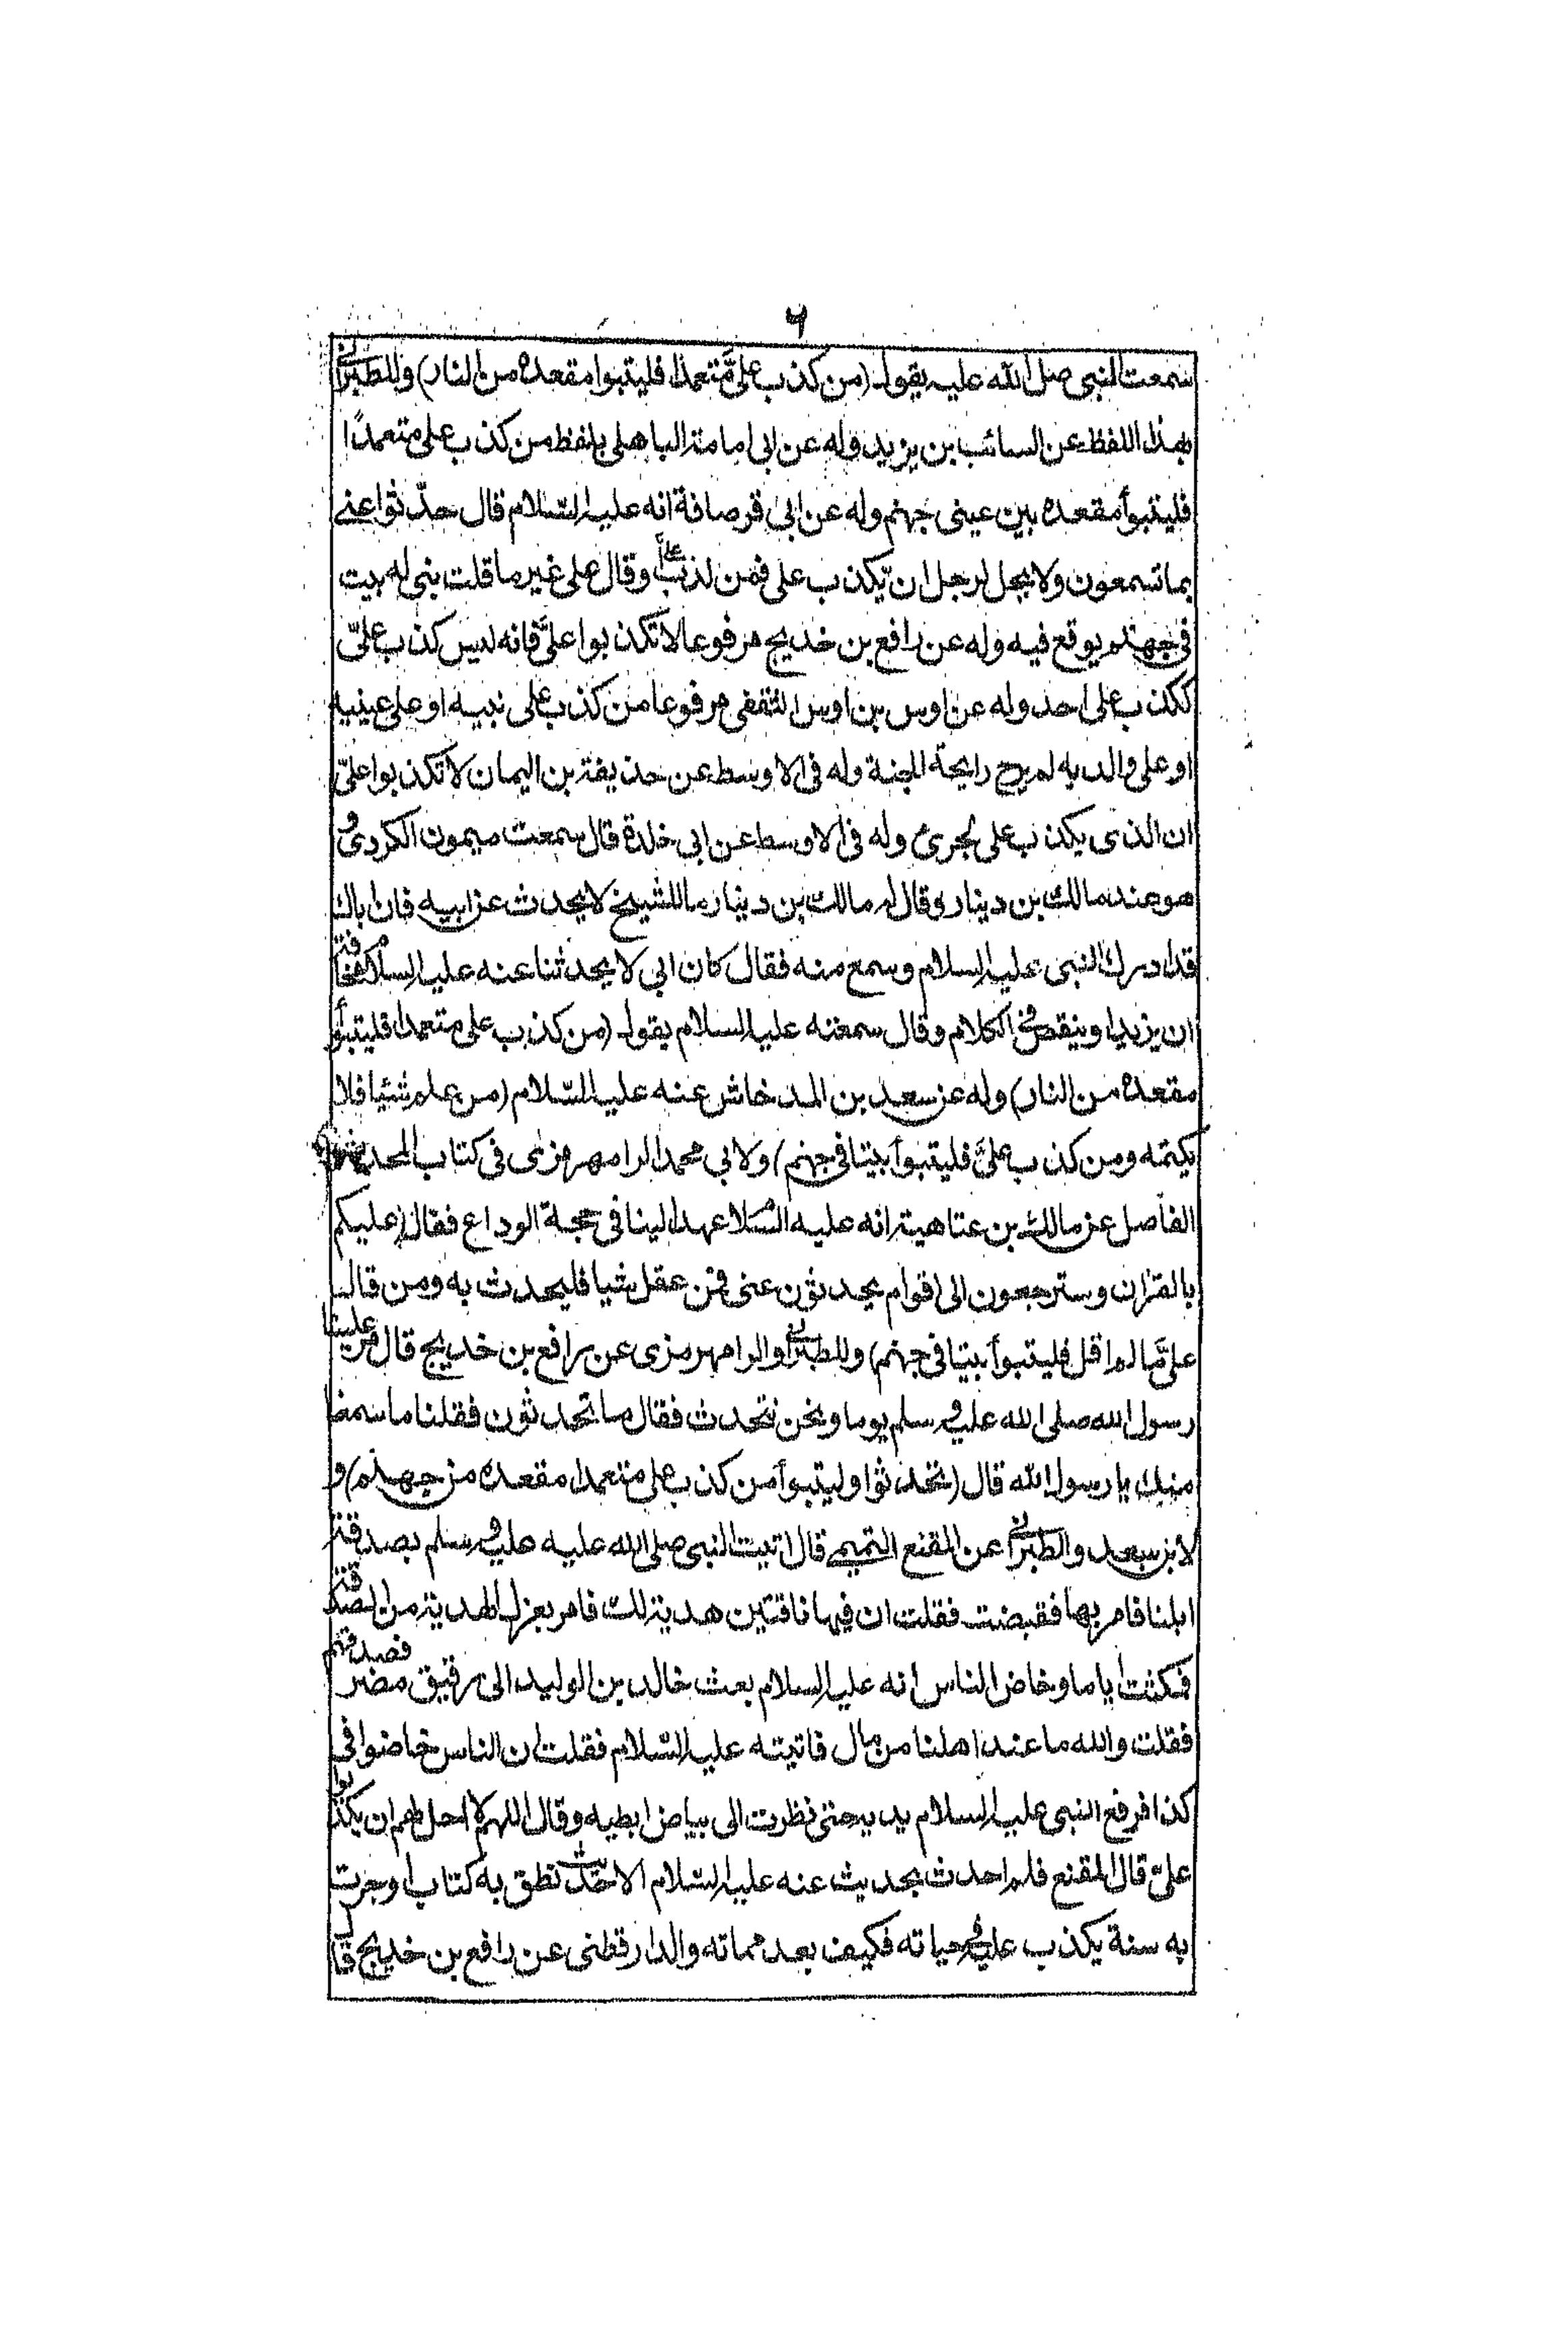 ٦
سمعت النبي صلى الله عليه يقول (من كذب علىّ متعمدا فليتبوا مقعده من النار) وللطبراني
بهذا اللفظ عن السائب بن يزيد وله عن ابى امامة الباهلى بلفظ من كذب على متعمدًا
فليتبوأ مقعده بين عينى جهنم وله عن ابى قرصافة انه عليه السّلام قال حدّثوا عنى
بما تسمعون ولا يحل لرجل ان يّكذب على فمن كذب علىّ وقال على غير ما قلت بنى له بيت
فى جهنم يوقع فيه وله عن رافع بن خديج مرفوعا لا تكذبوا علىَّ فانه ليس كذب علىّ
ككذب على احد وله عن اوس بن اوس الثقفى مرفوعا من كذب على نبيه او على عينيه
او على والديه لم يرح رايحة الجنة وله فى الاوسط عن حذيفة بن اليمان لا تكذبوا علىّ
ان الذى يكذب على لجرئ وله فى الاوسط عن ابى خلدة قال سمعت ميمون الكردى و
هو عند مالك بن دينار وقال له مالك بن دينار ما للشيخ لا يحدث عن ابيه فان اباك
قد ادرك النبى عليه السلام وسمع منه فقال كان ابى لا يحدثنا عنه عليه السلام مخافة
ان يزيد او ينقص فى الكلام وقال سمعته عليه السلام يقول (من كذب على متعمدا فليتبوأ
مقعده من النار) وله عن سعد بن المدخاش عنه عليه السّلام (من علم شيئا فلا
يكتمه ومن كذب علىَّ فليتبوأ بيتا فى جهنم) ولابى محمد الرامهرمزى فى كتاب المحدث
الفاصل عن مالك بن عتاهية انه عليه السّلام عهد الينا فى حجة الوداع فقال (عليكم
بالقران وسترجعون الى اقوام يحدثون عنى فمن عقل شيا فليحدث به ومن قال
علىَّ ما لم اقل فليتبوأ بيتا فى جهنم) وللطبرانى والرامهرمزى عن رافع بن خديج قال مر علينا
رسول الله صلى الله عليه وسلم يوما ونحن نتحدث فقال ما تحدثون فقلنا ما سمعنا
منك يا رسول الله قال (تحدثوا وليتبوأ من كذب على متعمدا مقعده من جهنم) و
لابن سعد والطبرانى عن المقنع التميمى قال اتيت النبى صلى الله عليه عليه وسلم بصدقة
ابلنا فامر بها فقبضت فقلت ان فيها ناقتين هدية لك فامر بعزل الهدية من الصدقة
فمكثت اياما وخاض الناس انه عليه السلام بعث خالد بن الوليد الى رقيق مضر فصدقهم
فقلت والله ما عند اهلنا من مال فاتيته عليه السّلام فقلت ان الناس خاضوا فى
كذا فرفع النبى عليه السلام يديه حتى نظرت الى بياض ابطيه وقال اللهم لا احل لهم ان يكذبوا
علىّ قال المقنع فلم احدث بحديث عنه عليه السّلام الا حديث نطق به كتاب او جرت
به سنة يكذب عليه فى حياته فكيف بعد مماته والدارقطنى عن رافع بن خديج قال